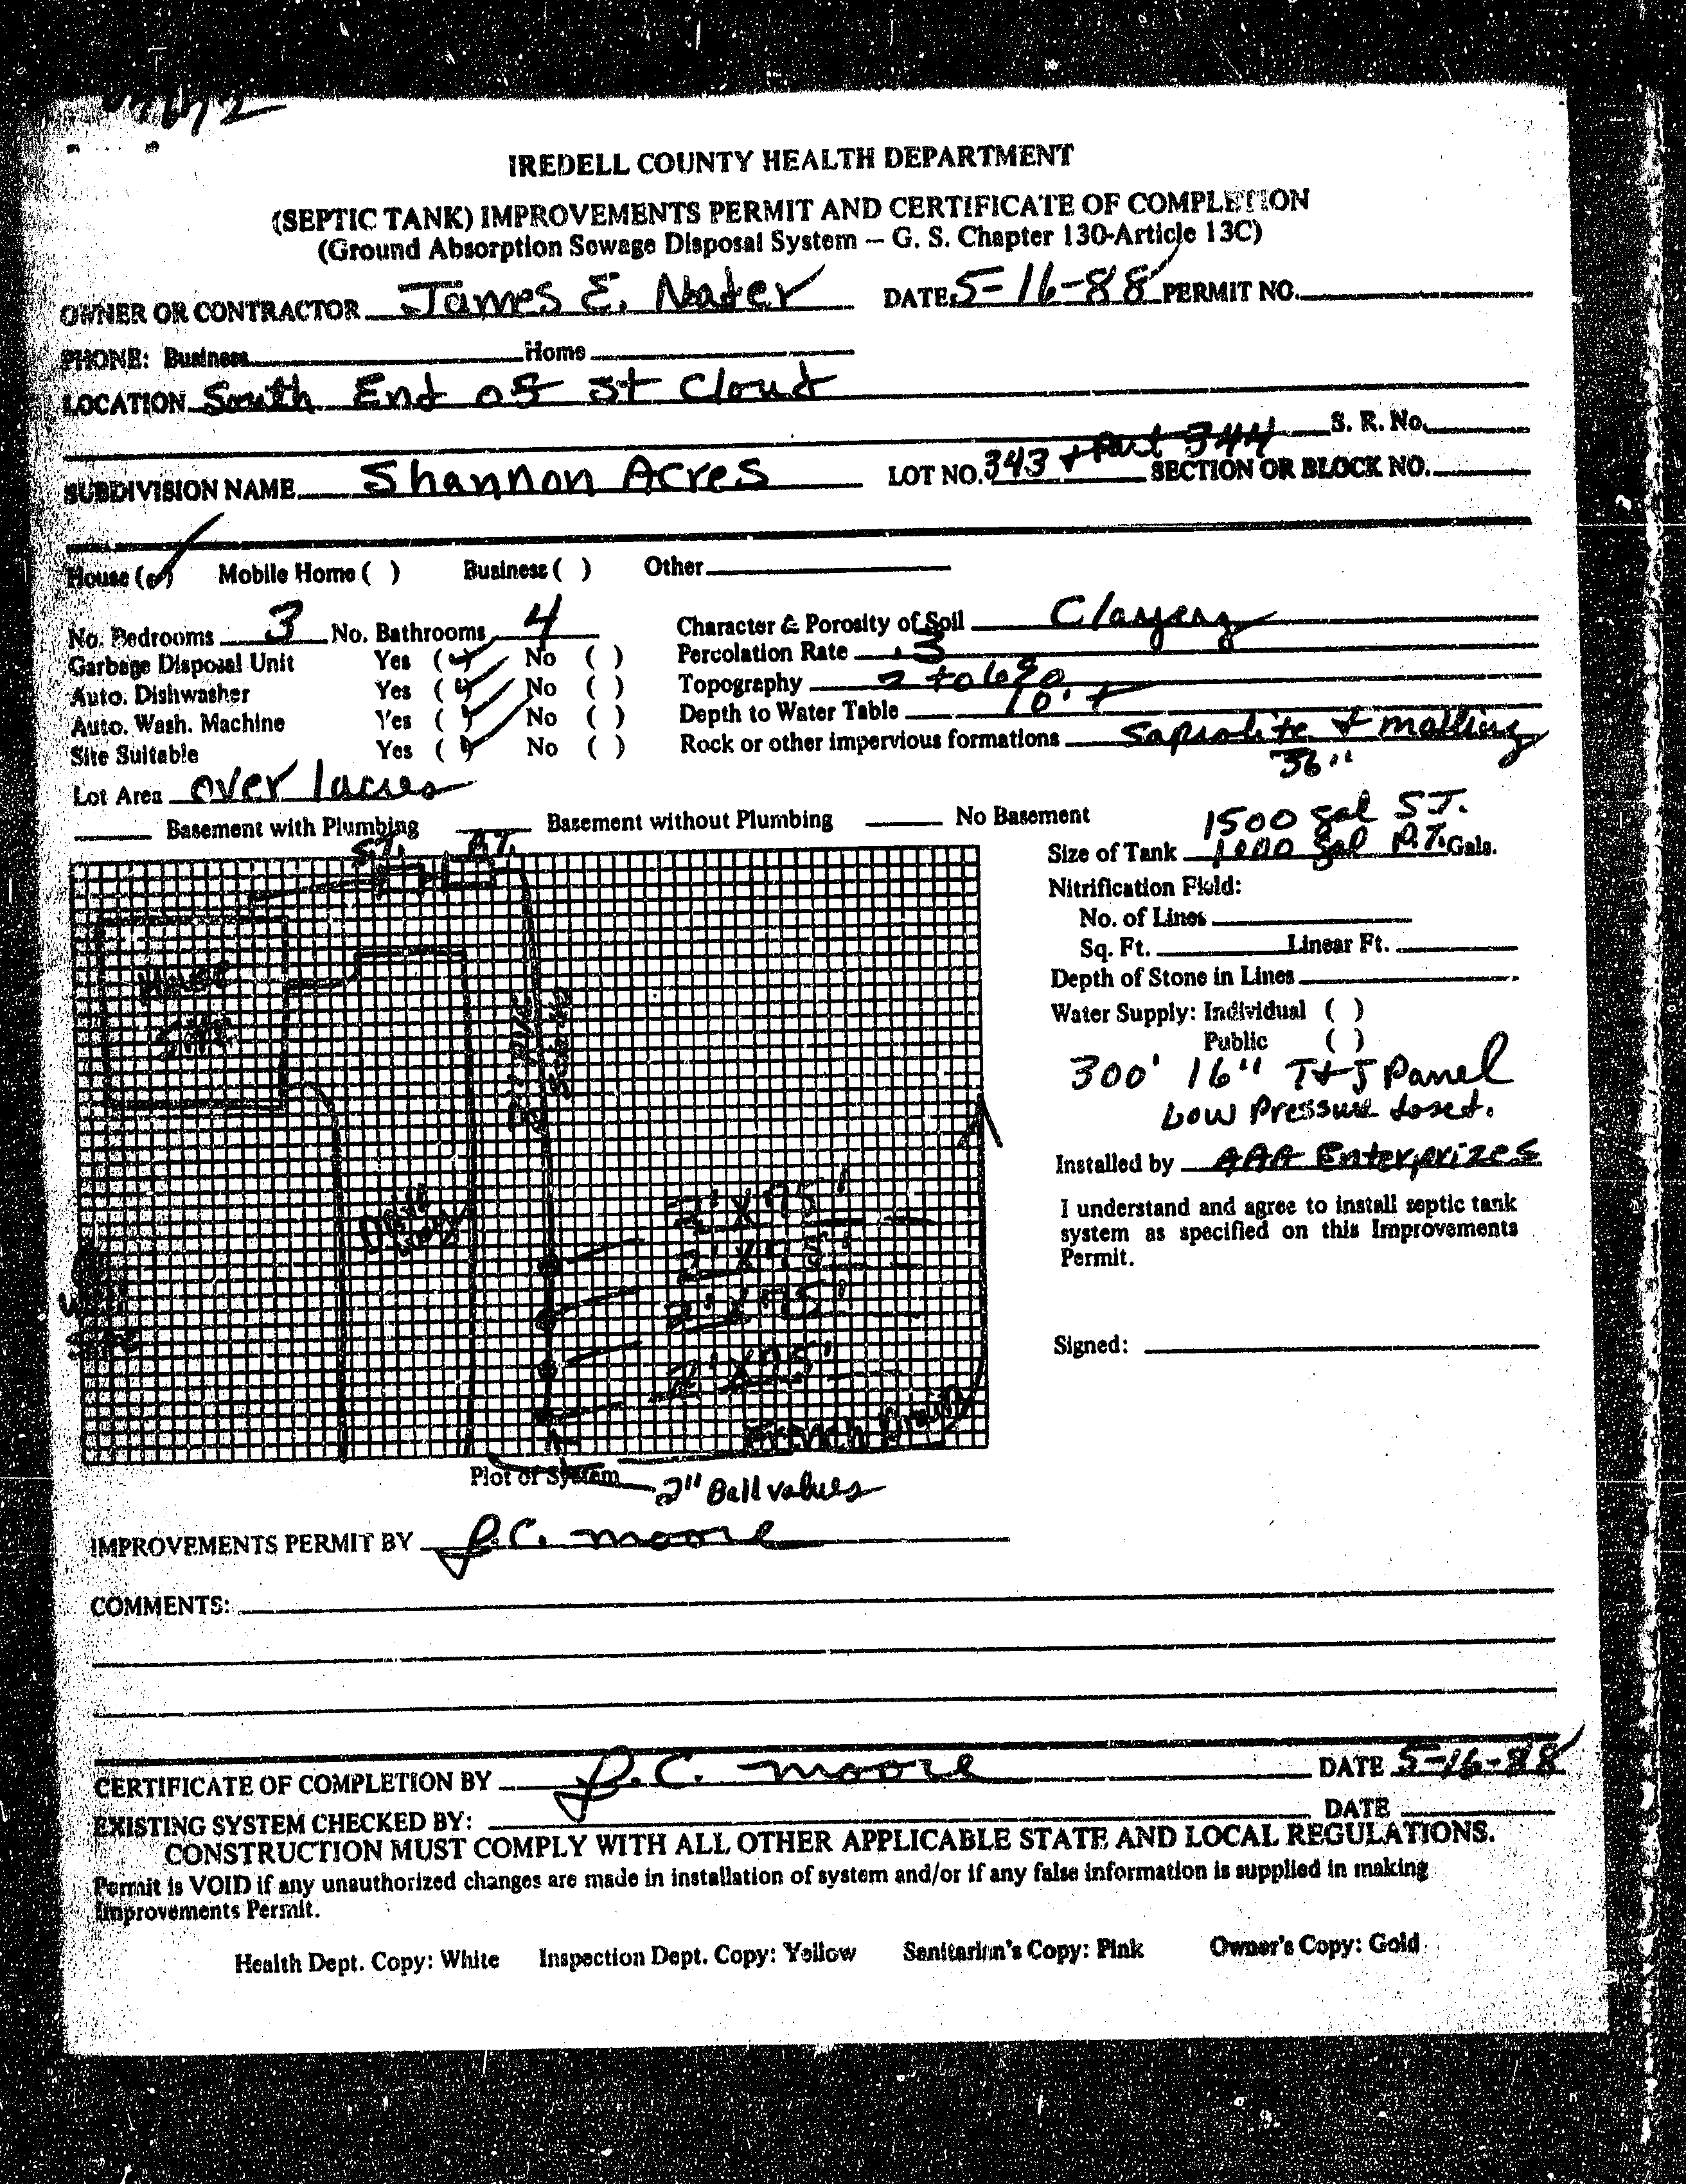 IREDELL COUNTY HEALTH DEPARTMENT
(SEPTIC TANK) IMPROVEMENTS PERMIT AND CERTIFICATE OF COMPLETION
(Ground Absorption Sewage Disposal System -- G. S. Chapter 130-Article 13C)
OWNER OR CONTRACTOR James E. Nader DATE 5-16-88 PERMIT NO.
PHONE: Business Home
LOCATION South End of St Cloud
S. R. No.
SUBDIVISION NAME Shannon Acres LOT NO. 343 + Part 344 SECTION OR BLOCK NO.
House ( ) Mobile Home ( ) Business ( ) Other
No. Bedrooms 3 No. Bathrooms 4 Character & Porosity of Soil Clayey
Garbage Disposal Unit Yes ( ) No ( ) Percolation Rate .3
Auto. Dishwasher Yes ( ) No ( ) Topography 2 to 6%
Auto. Wash. Machine Yes ( ) No ( ) Depth to Water Table 10' +
Site Suitable Yes ( ) No ( ) Rock or other impervious formations
36"
Lot Area over 1 acres
Basement with Plumbing Basement without Plumbing No Basement
1500 gal S.T.
Size of Tank 1000 gal P.T. Gals.
Nitrification Field:
No. of Lines
Sq. Ft. Linear Ft.
Depth of Stone in Lines
Water Supply: Individual ( )
Public ( )
300' 16" T+J Panel
Low Pressure dosed.
Installed by AAA Enterprizes
I understand and agree to install septic tank
system as specified on this Improvements
Permit.
Signed:
S.T. P.T.
House
Drive
way
Well
Site
2' X 75'
2' X 75'
2' X 75'
2' X 75'
French Drain
Plot of System
2" Ball valves
IMPROVEMENTS PERMIT BY J.C. Moore
COMMENTS:
CERTIFICATE OF COMPLETION BY J.C. Moore DATE 5-16-88
EXISTING SYSTEM CHECKED BY: DATE
CONSTRUCTION MUST COMPLY WITH ALL OTHER APPLICABLE STATE AND LOCAL REGULATIONS.
Permit is VOID if any unauthorized changes are made in installation of system and/or if any false information is supplied in making
Improvements Permit.
Health Dept. Copy: White Inspection Dept. Copy: Yellow Sanitarian's Copy: Pink Owner's Copy: Gold